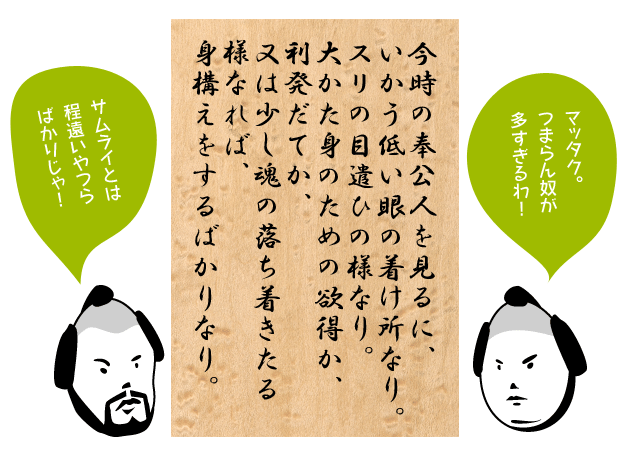 マッタク。
つまらん奴が
多すぎるわ！
今時の奉公人を見るに、
いかう低い眼の着け所なり。
スリの目遣ひの様なり。
大かた身のための欲得か、
利発だてか、
又は少し魂の落ち着きたる
様なれば、
身構えをするばかりなり。
サムライとは
程遠いやつら
ばかりじゃ！